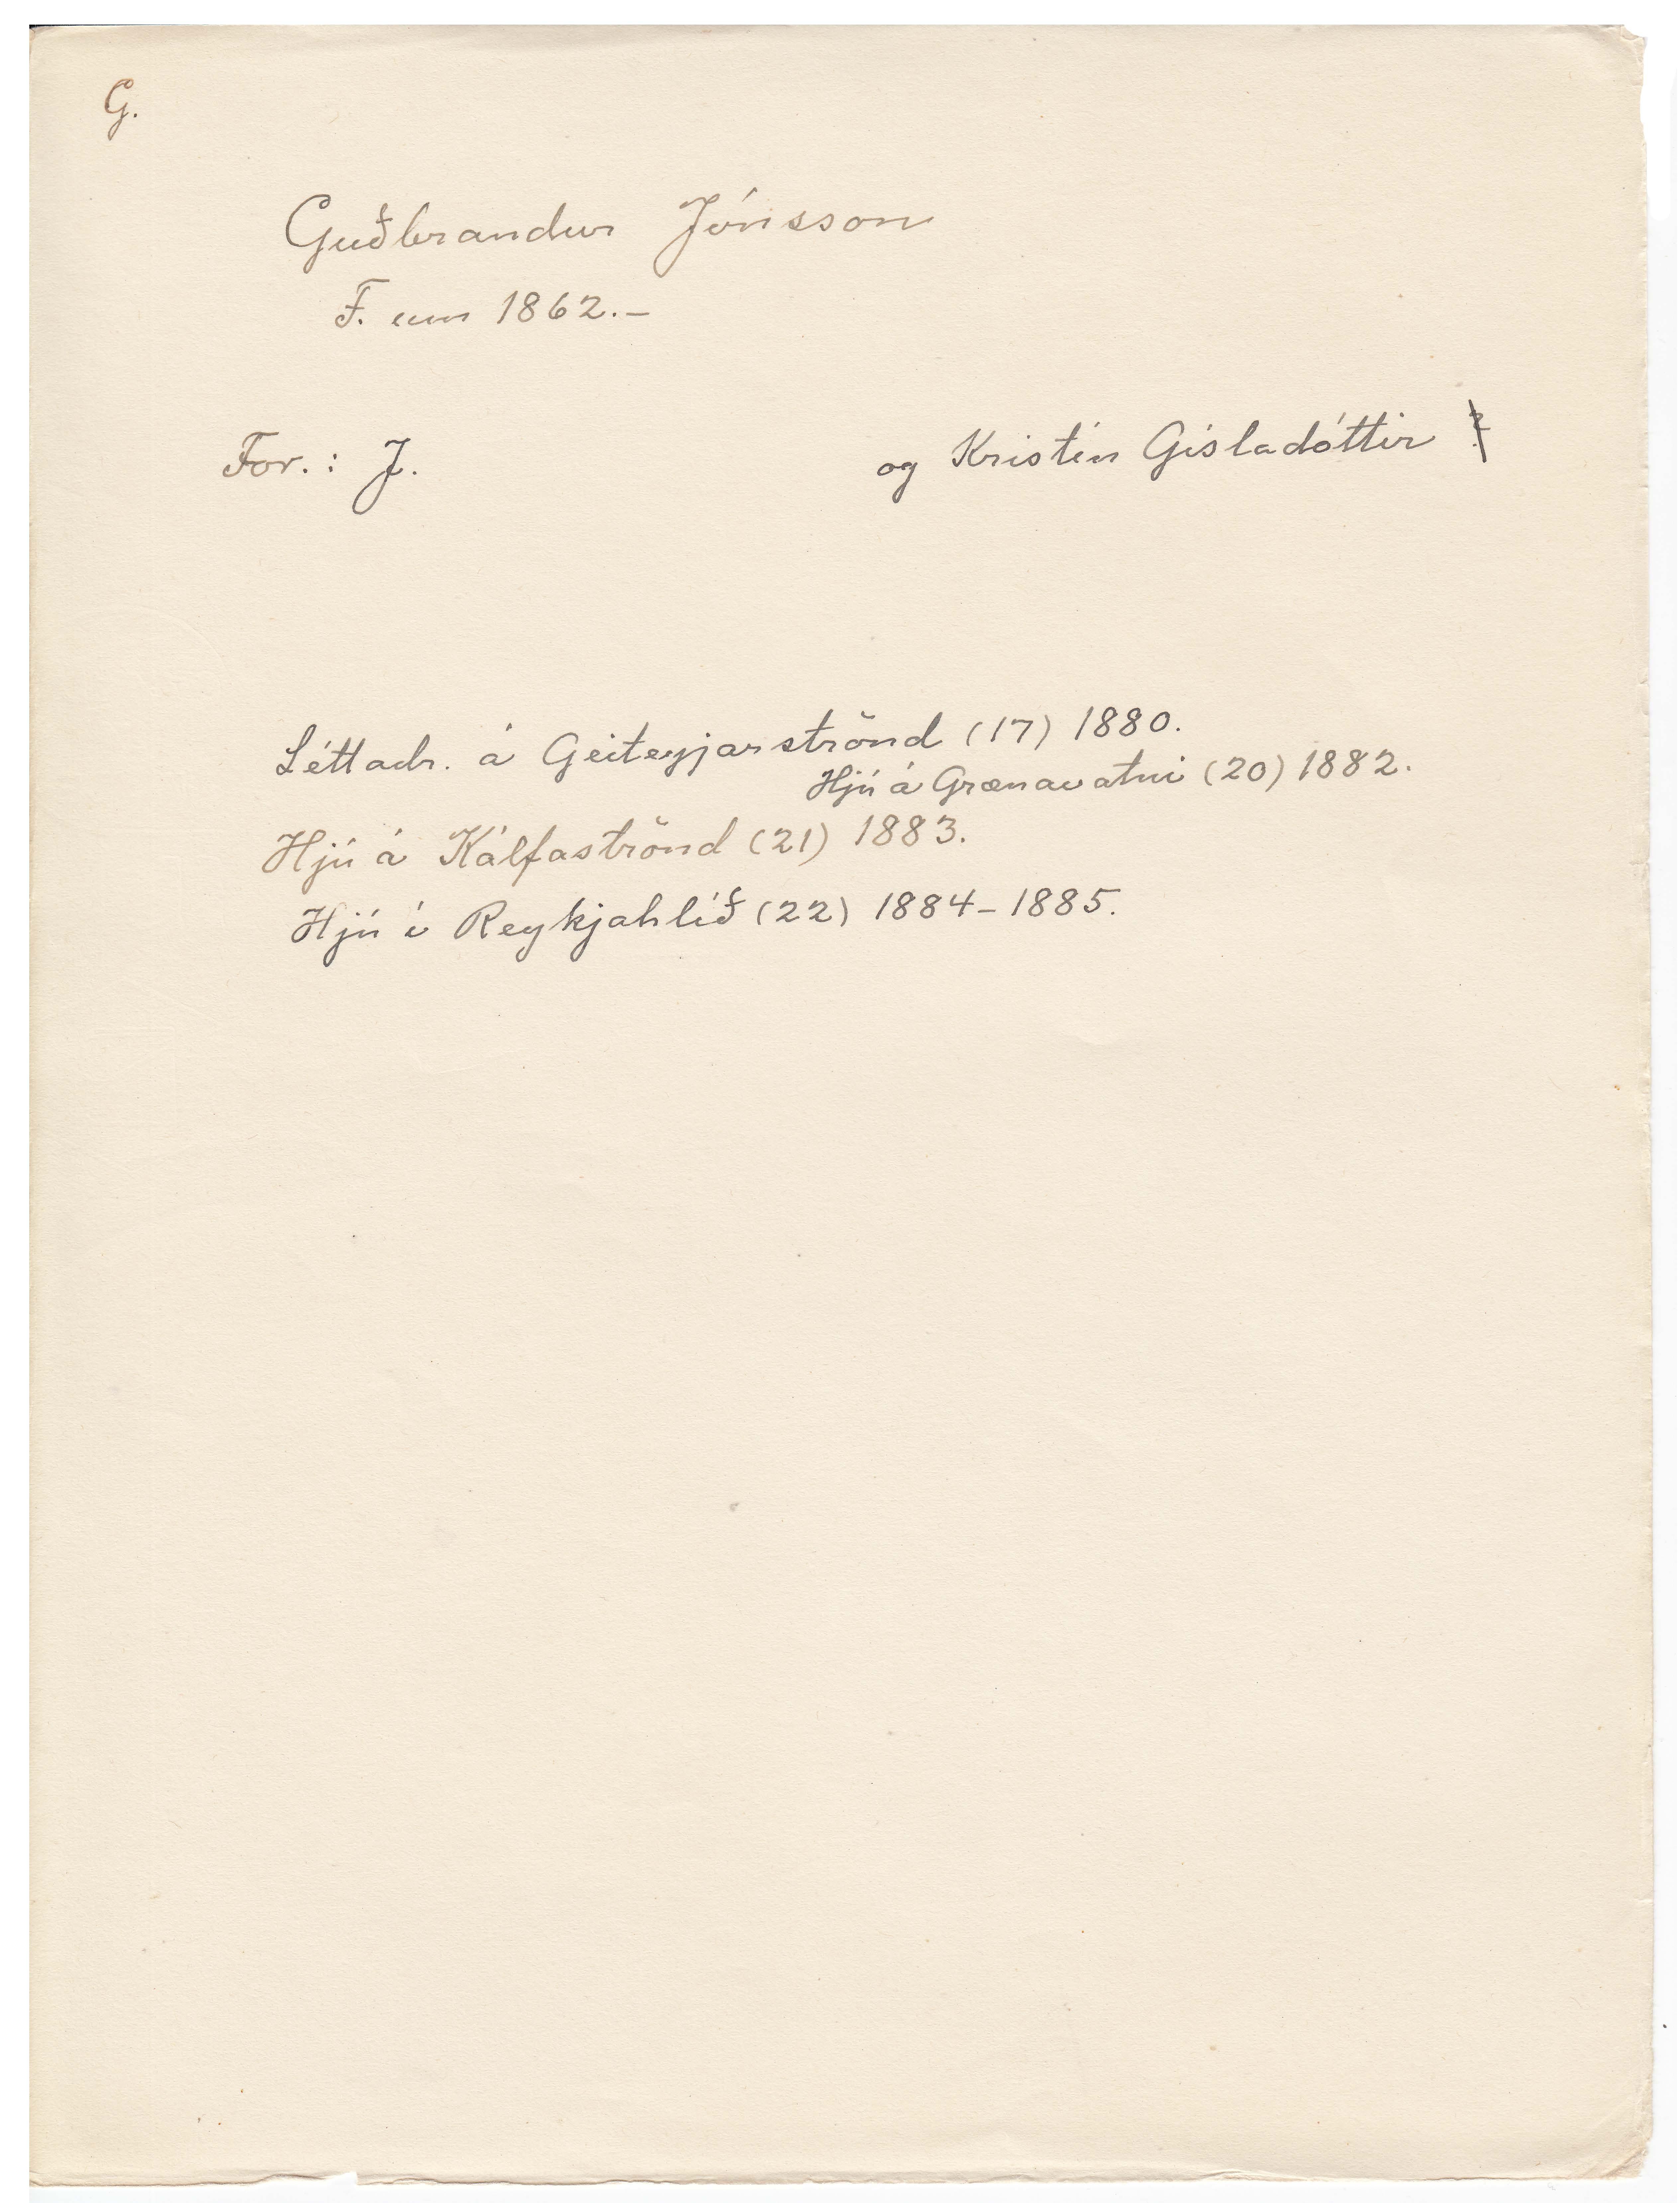 G.
Guðbrandur Jónsson
F. um 1862.-
For.: J. og Kristín Gísladóttir
Léttadr. á Geiteyjarströnd (17) 1880.
Hjú á Grænavatni (20) 1882.
Hjú á Kálfaströnd (21) 1883.
Hjú í Reykjahlíð (22) 1884-1885.